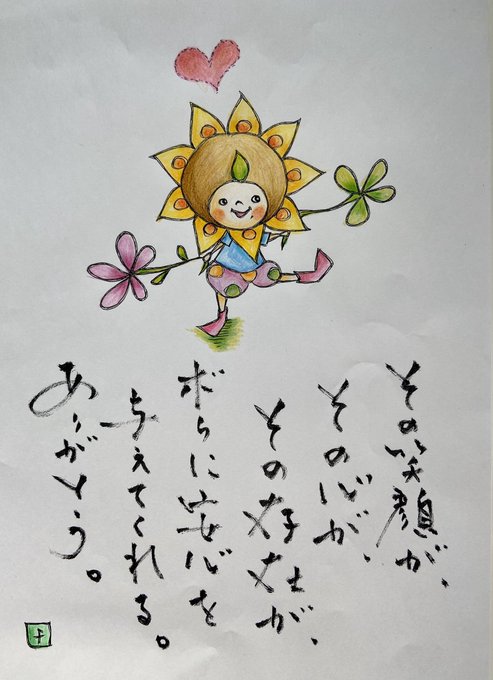 その笑顔が、
その心が、
その存在が、
ボクらに安心を
与えてくれる。
ありがとう。